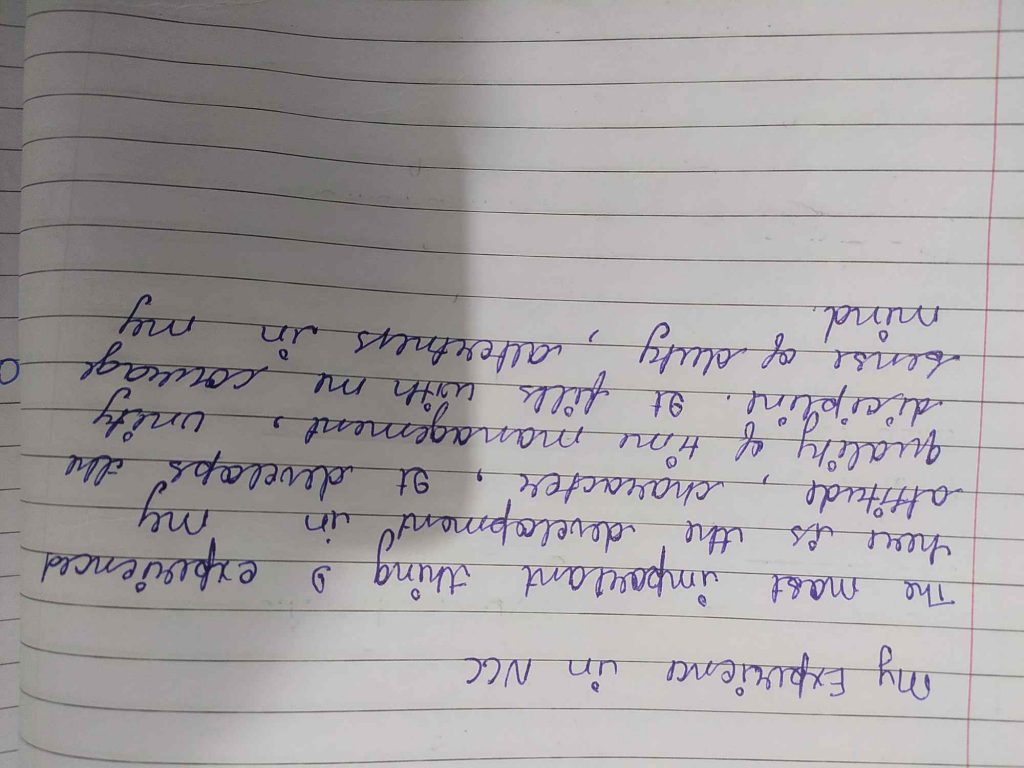 My Experience in NCC
The most important thing I experienced
here is the development in my
attitude , character , It develops the
quality of time management , unity
dicipline. It fills with me courage
sense of duty , alertness in my
mind.